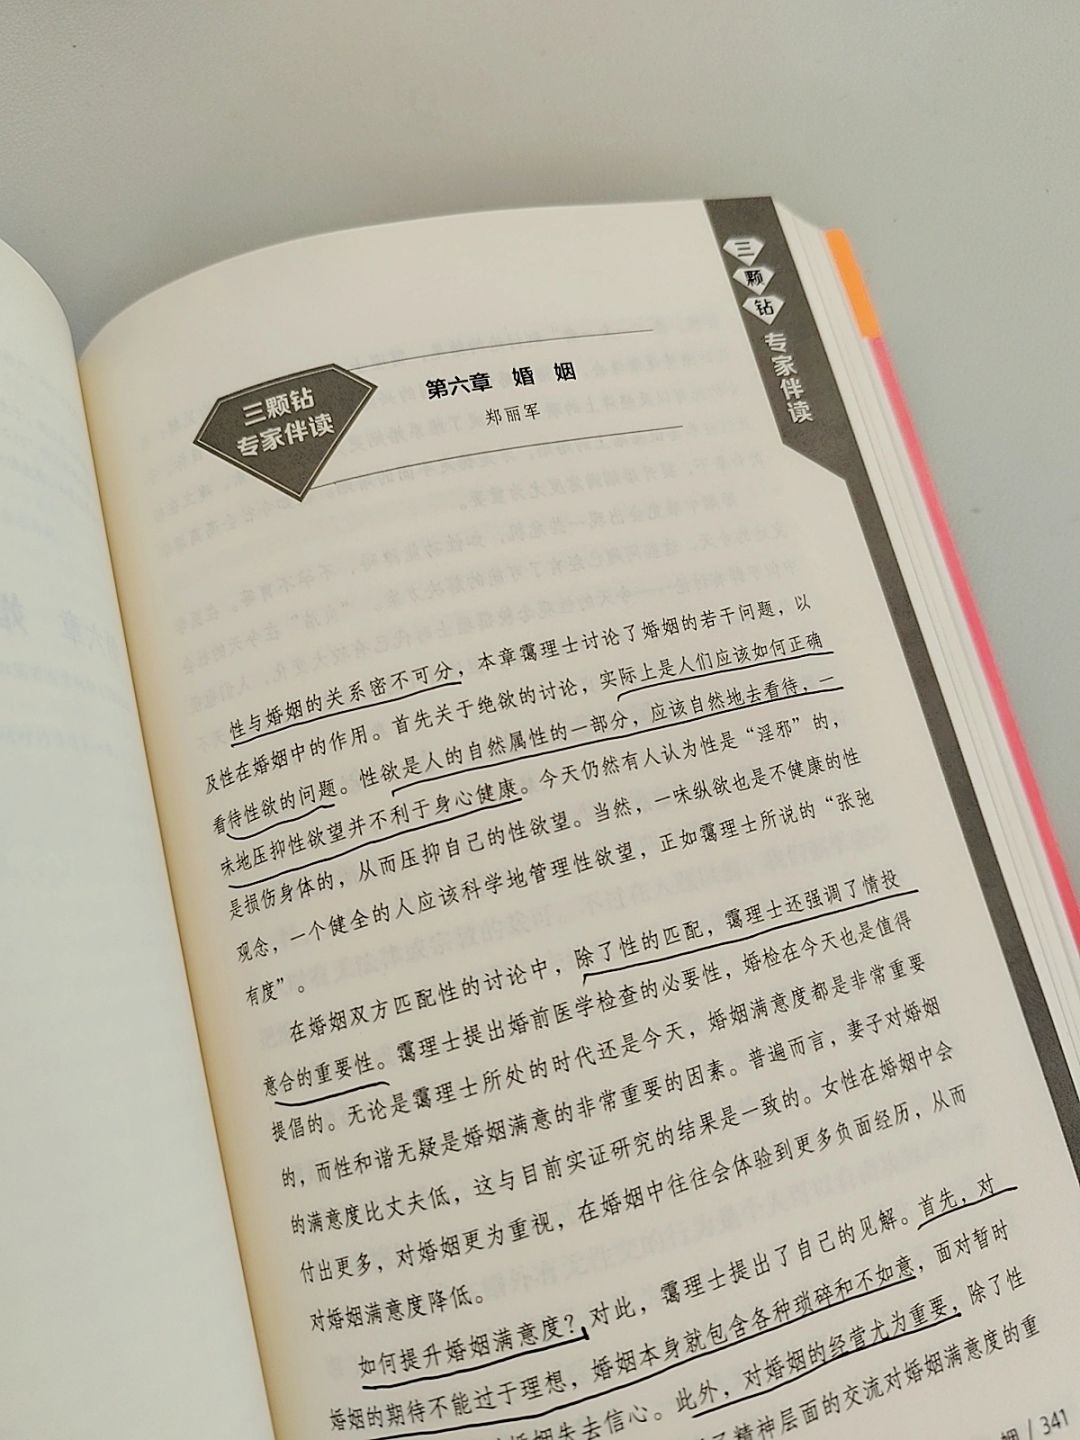 三颗钻
专家伴读
第六章 婚 姻
郑丽军
三
颗
钻
专家伴读
性与婚姻的关系密不可分，本章霭理士讨论了婚姻的若干问题，以
及性在婚姻中的作用。首先关于绝欲的讨论，实际上是人们应该如何正确
看待性欲的问题。性欲是人的自然属性的一部分，应该自然地去看待，一
味地压抑性欲望并不利于身心健康。今天仍然有人认为性是“淫邪”的，
是损伤身体的，从而压抑自己的性欲望。当然，一味纵欲也是不健康的性
观念，一个健全的人应该科学地管理性欲望，正如霭理士所说的“张弛
有度”。
在婚姻双方匹配性的讨论中，除了性的匹配，霭理士还强调了情投
意合的重要性。霭理士提出婚前医学检查的必要性，婚检在今天也是值得
提倡的。无论是霭理士所处的时代还是今天，婚姻满意度都是非常重要
的，而性和谐无疑是婚姻满意的非常重要的因素。普遍而言，妻子对婚姻
的满意度比丈夫低，这与目前实证研究的结果是一致的。女性在婚姻中会
付出更多，对婚姻更为重视，在婚姻中往往会体验到更多负面经历，从而
对婚姻满意度降低。
如何提升婚姻满意度？对此，霭理士提出了自己的见解。首先，对
婚姻的期待不能过于理想，婚姻本身就包含各种琐碎和不如意，面对暂时
婚姻失去信心。此外，对婚姻的经营尤为重要，除了性
了精神层面的交流对婚姻满意度的重
姻 / 341
第六章 婚